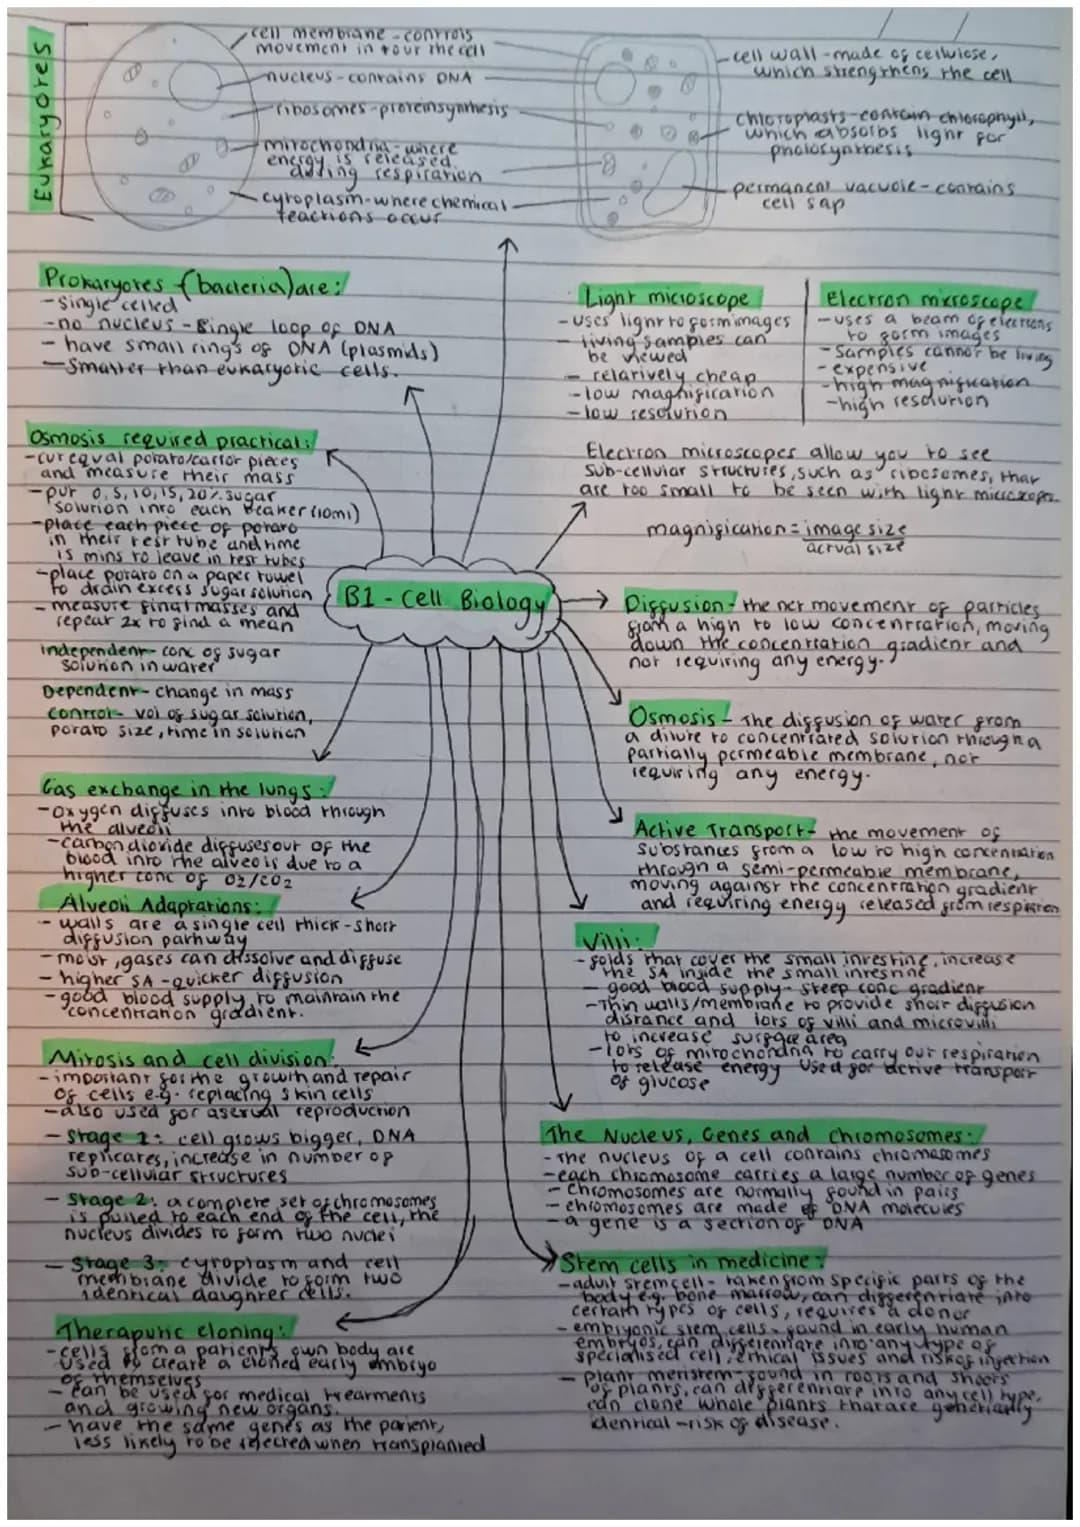 Eukaryotes
cell membrane - controls
movement in + our the cell
nucleus - contains DNA
ribosomes - protein synthesis
mitochondria - where
energy is released
during respiration
cytoplasm - where chemical
reactions occur
cell wall - made of cellulose,
which strengthens the cell
chloroplasts - contain chlorophyll,
which absorbs light for
photosynthesis
permanent vacuole - contains
cell sap
Prokaryotes (bacteria) are:
- single celled
- no nucleus - single loop of DNA
- have small rings of DNA (plasmids)
- Smaller than eukaryotic cells.
Light microscope
- uses light to form images
- living samples can
be viewed
- relatively cheap
- low magnification
- low resolution
Electron microscope
- uses a beam of electrons
to form images
- Samples cannot be living
- expensive
- high magnification
- high resolution
Electron microscopes allow you to see
sub-cellular structures, such as ribosomes, that
are too small to be seen with light microscopes.
magnification = image size
actual size
Osmosis required practical:
- cut equal potato/carrot pieces
and measure their mass
- put 0, 5, 10, 15, 20% sugar
solution into each beaker (10ml)
- place each piece of potato
in their test tube and time
15 mins to leave in test tubes
- place potato on a paper towel
to drain excess sugar solution
- measure final masses and
repeat 2x to find a mean
independent - conc of sugar
solution in water
Dependent - change in mass
control - vol of sugar solution,
potato size, time in solution
B1 - Cell Biology
Diffusion - the net movement of particles
from a high to low concentration, moving
down the concentration gradient and
not requiring any energy.
Osmosis - The diffusion of water from
a dilute to concentrated solution through a
partially permeable membrane, not
requiring any energy.
Active Transport - the movement of
substances from a low to high concentration
through a semi-permeable membrane,
moving against the concentration gradient
and requiring energy released from respiration
Gas exchange in the lungs:
- Oxygen diffuses into blood through
the alveoli
- carbon dioxide diffuses out of the
blood into the alveoli is due to a
higher conc of O2/CO2
Alveoli Adaptations:
- walls are a single cell thick - short
diffusion pathway
- moist, gases can dissolve and diffuse
- higher SA - quicker diffusion
- good blood supply, to maintain the
concentration gradient.
Villi:
- folds that cover the small intestine, increase
the SA inside the small intestine
- good blood supply - steep conc gradient
- Thin walls/membrane to provide short diffusion
distance and lots of villi and microvilli
to increase surface area
- lots of mitochondria to carry out respiration
to release energy used for active transport
of glucose
Mitosis and cell division:
- important for the growth and repair
of cells e.g. replacing skin cells
- also used for asexual reproduction
- Stage 1: cell grows bigger, DNA
replicates, increase in number of
sub-cellular structures
- Stage 2: a complete set of chromosomes
is pulled to each end of the cell, the
nucleus divides to form two nuclei
- Stage 3: cytoplasm and cell
membrane divide to form two
identical daughter cells.
The Nucleus, Genes and Chromosomes:
- the nucleus of a cell contains chromosomes
- each chromosome carries a large number of genes
- chromosomes are normally found in pairs
- chromosomes are made of DNA molecules
- a gene is a section of DNA
Stem cells in medicine:
- adult stem cell - taken from specific parts of the
body e.g. bone marrow, can differentiate into
certain types of cells, requires a donor
- embryonic stem cells - found in early human
embryos, can differentiate into any type of
specialised cell, ethical issues and risk of injection
- plant meristem - found in roots and shoots
of plants, can differentiate into any cell type,
can clone whole plants that are genetically
identical - risk of disease.
Theraputic cloning:
- cells from a patients own body are
used to create a cloned early embryo
of themselves
- can be used for medical treatments
and growing new organs.
- have the same genes as the patient,
less likely to be rejected when transplanted